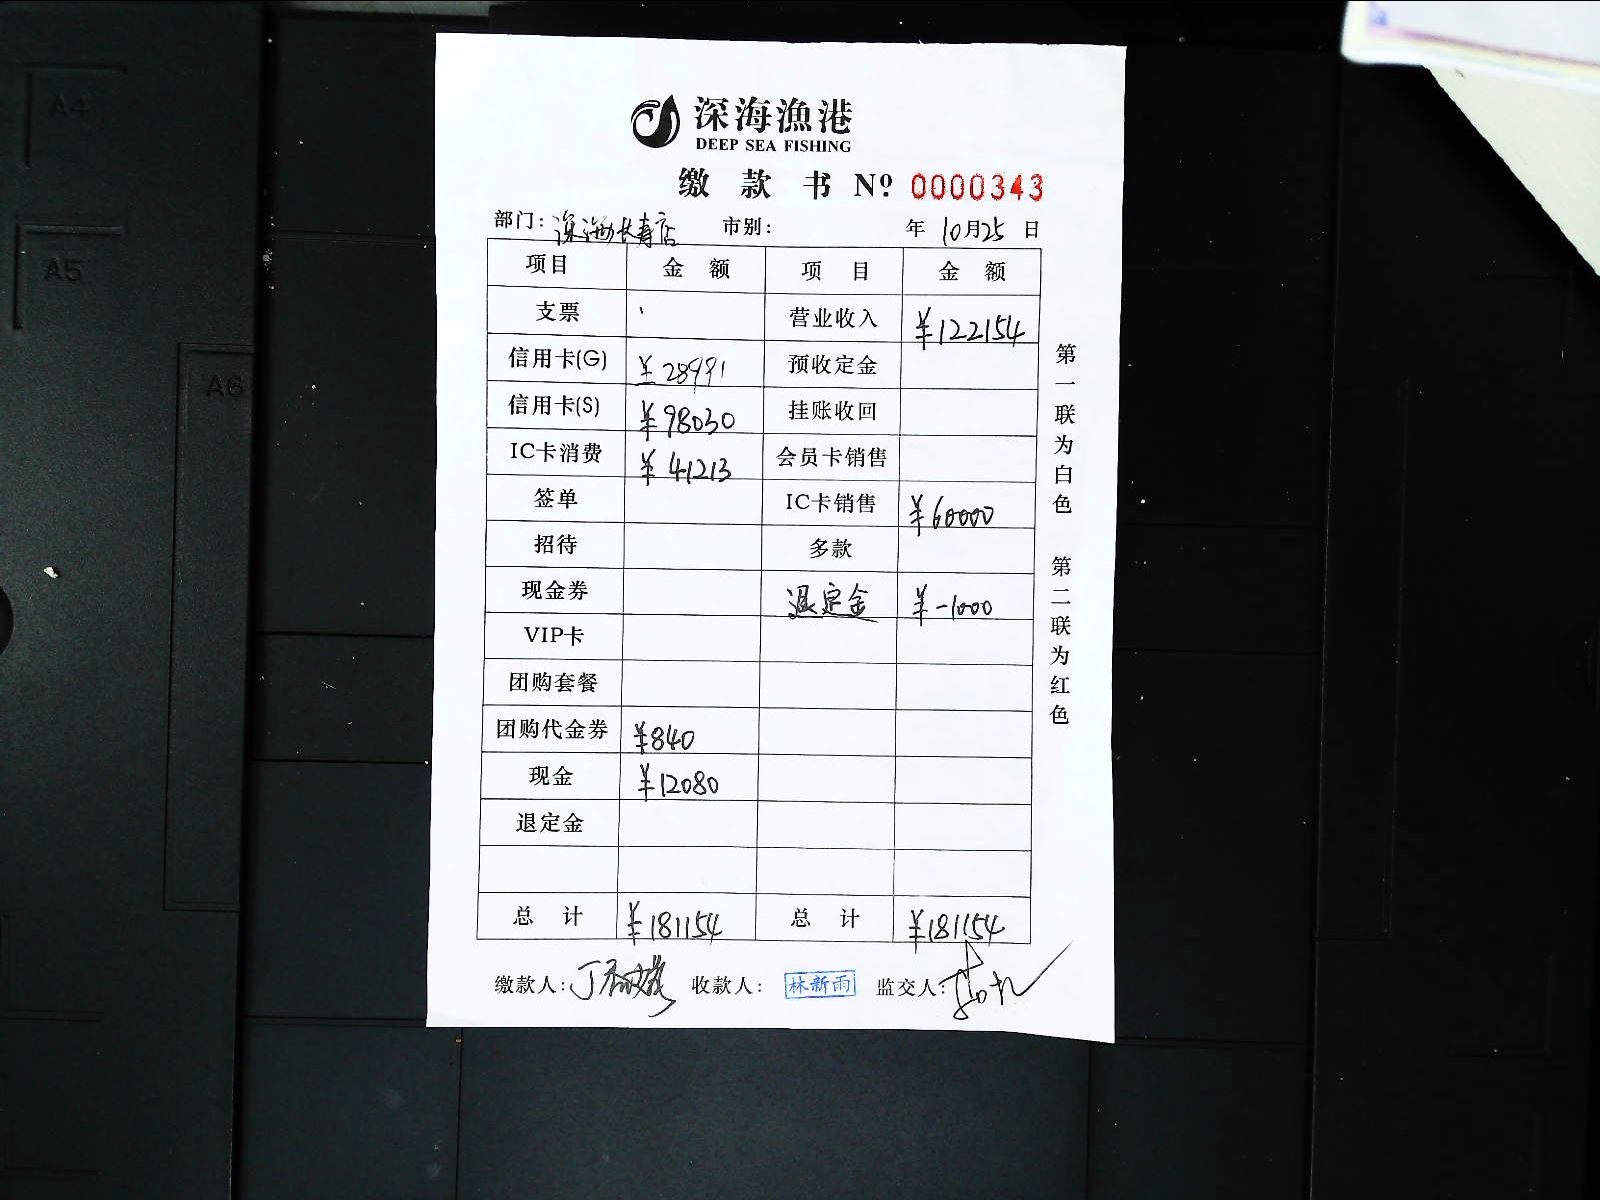 A4
A5
A6
深海漁港
DEEP SEA FISHING
缴款书 Nº 0000343
部门: 深海长寿店 市别: 年 10月25日
项目 金额 项目 金额
支票 营业收入 ¥122154
信用卡(G) ¥28991 预收定金
信用卡(S) ¥98030 挂账收回
IC卡消费 ¥41213 会员卡销售
签单 IC卡销售 ¥60000
招待 多款
现金券 退定金 ¥-1000
VIP卡
团购套餐
团购代金券 ¥840
现金 ¥12080
退定金
总计 ¥181154 总计 ¥181154
缴款人: 收款人: 林新雨 监交人:
第一联为白色 第二联为红色